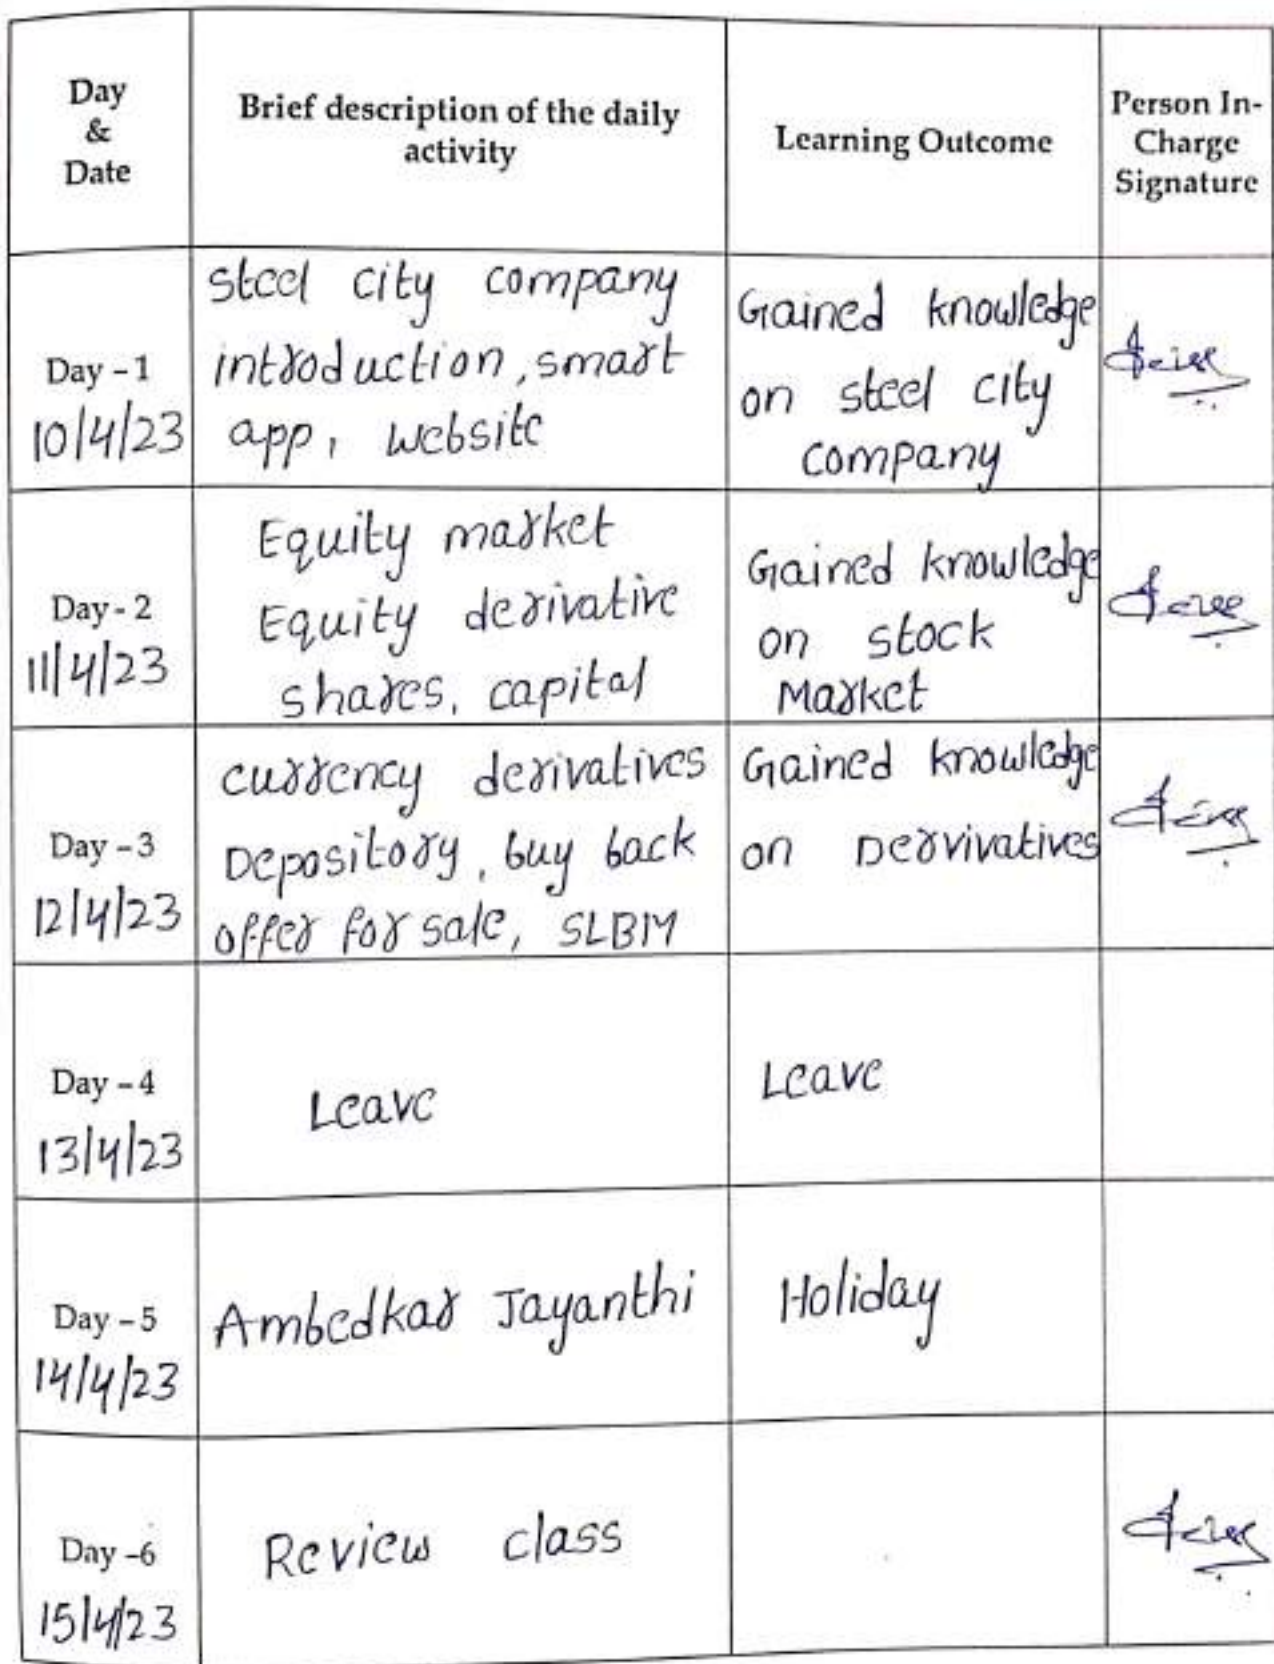 Day
&
Date
Brief description of the daily
activity
Learning Outcome
Person In-
Charge
Signature
Day - 1
10/4/23
steel city company
introduction, smart
app, website
Gained knowledge
on steel city
company
Day - 2
11/4/23
Equity market
Equity derivative
shares, capital
Gained knowledge
on stock
Market
Day - 3
12/4/23
currency derivatives
Depository, buy back
offer for sale, SLBM
Gained knowledge
on Dervivatives
Day - 4
13/4/23
Leave
Leave
Day - 5
14/4/23
Ambedkar Jayanthi
Holiday
Day -6
15/4/23
Review class